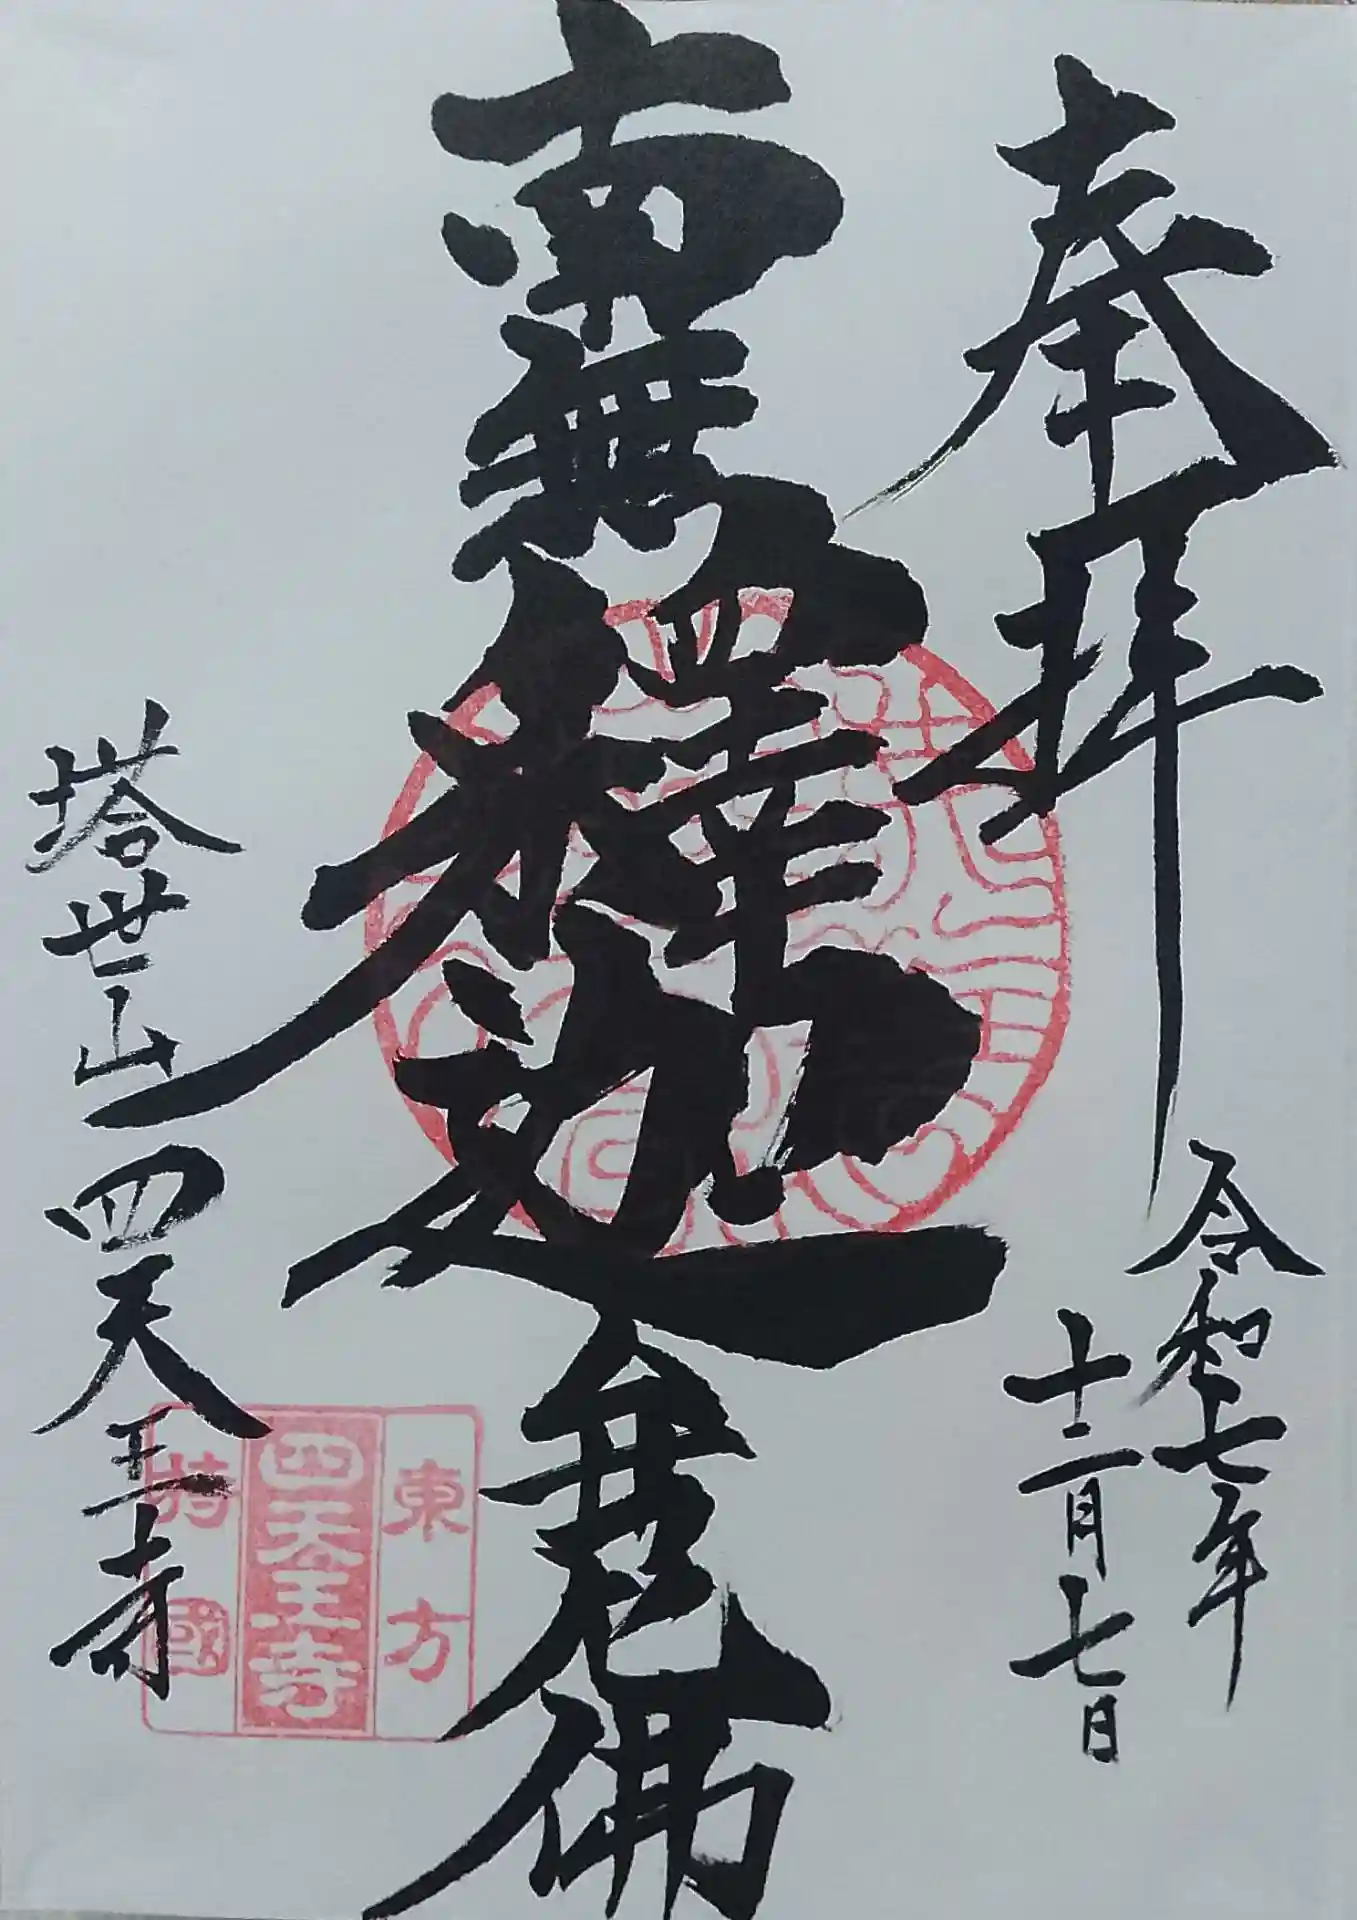 奉拝
令和七年
十二月七日
南無釋迦牟尼佛
塔世山四天王寺
東方
四天王寺
持國